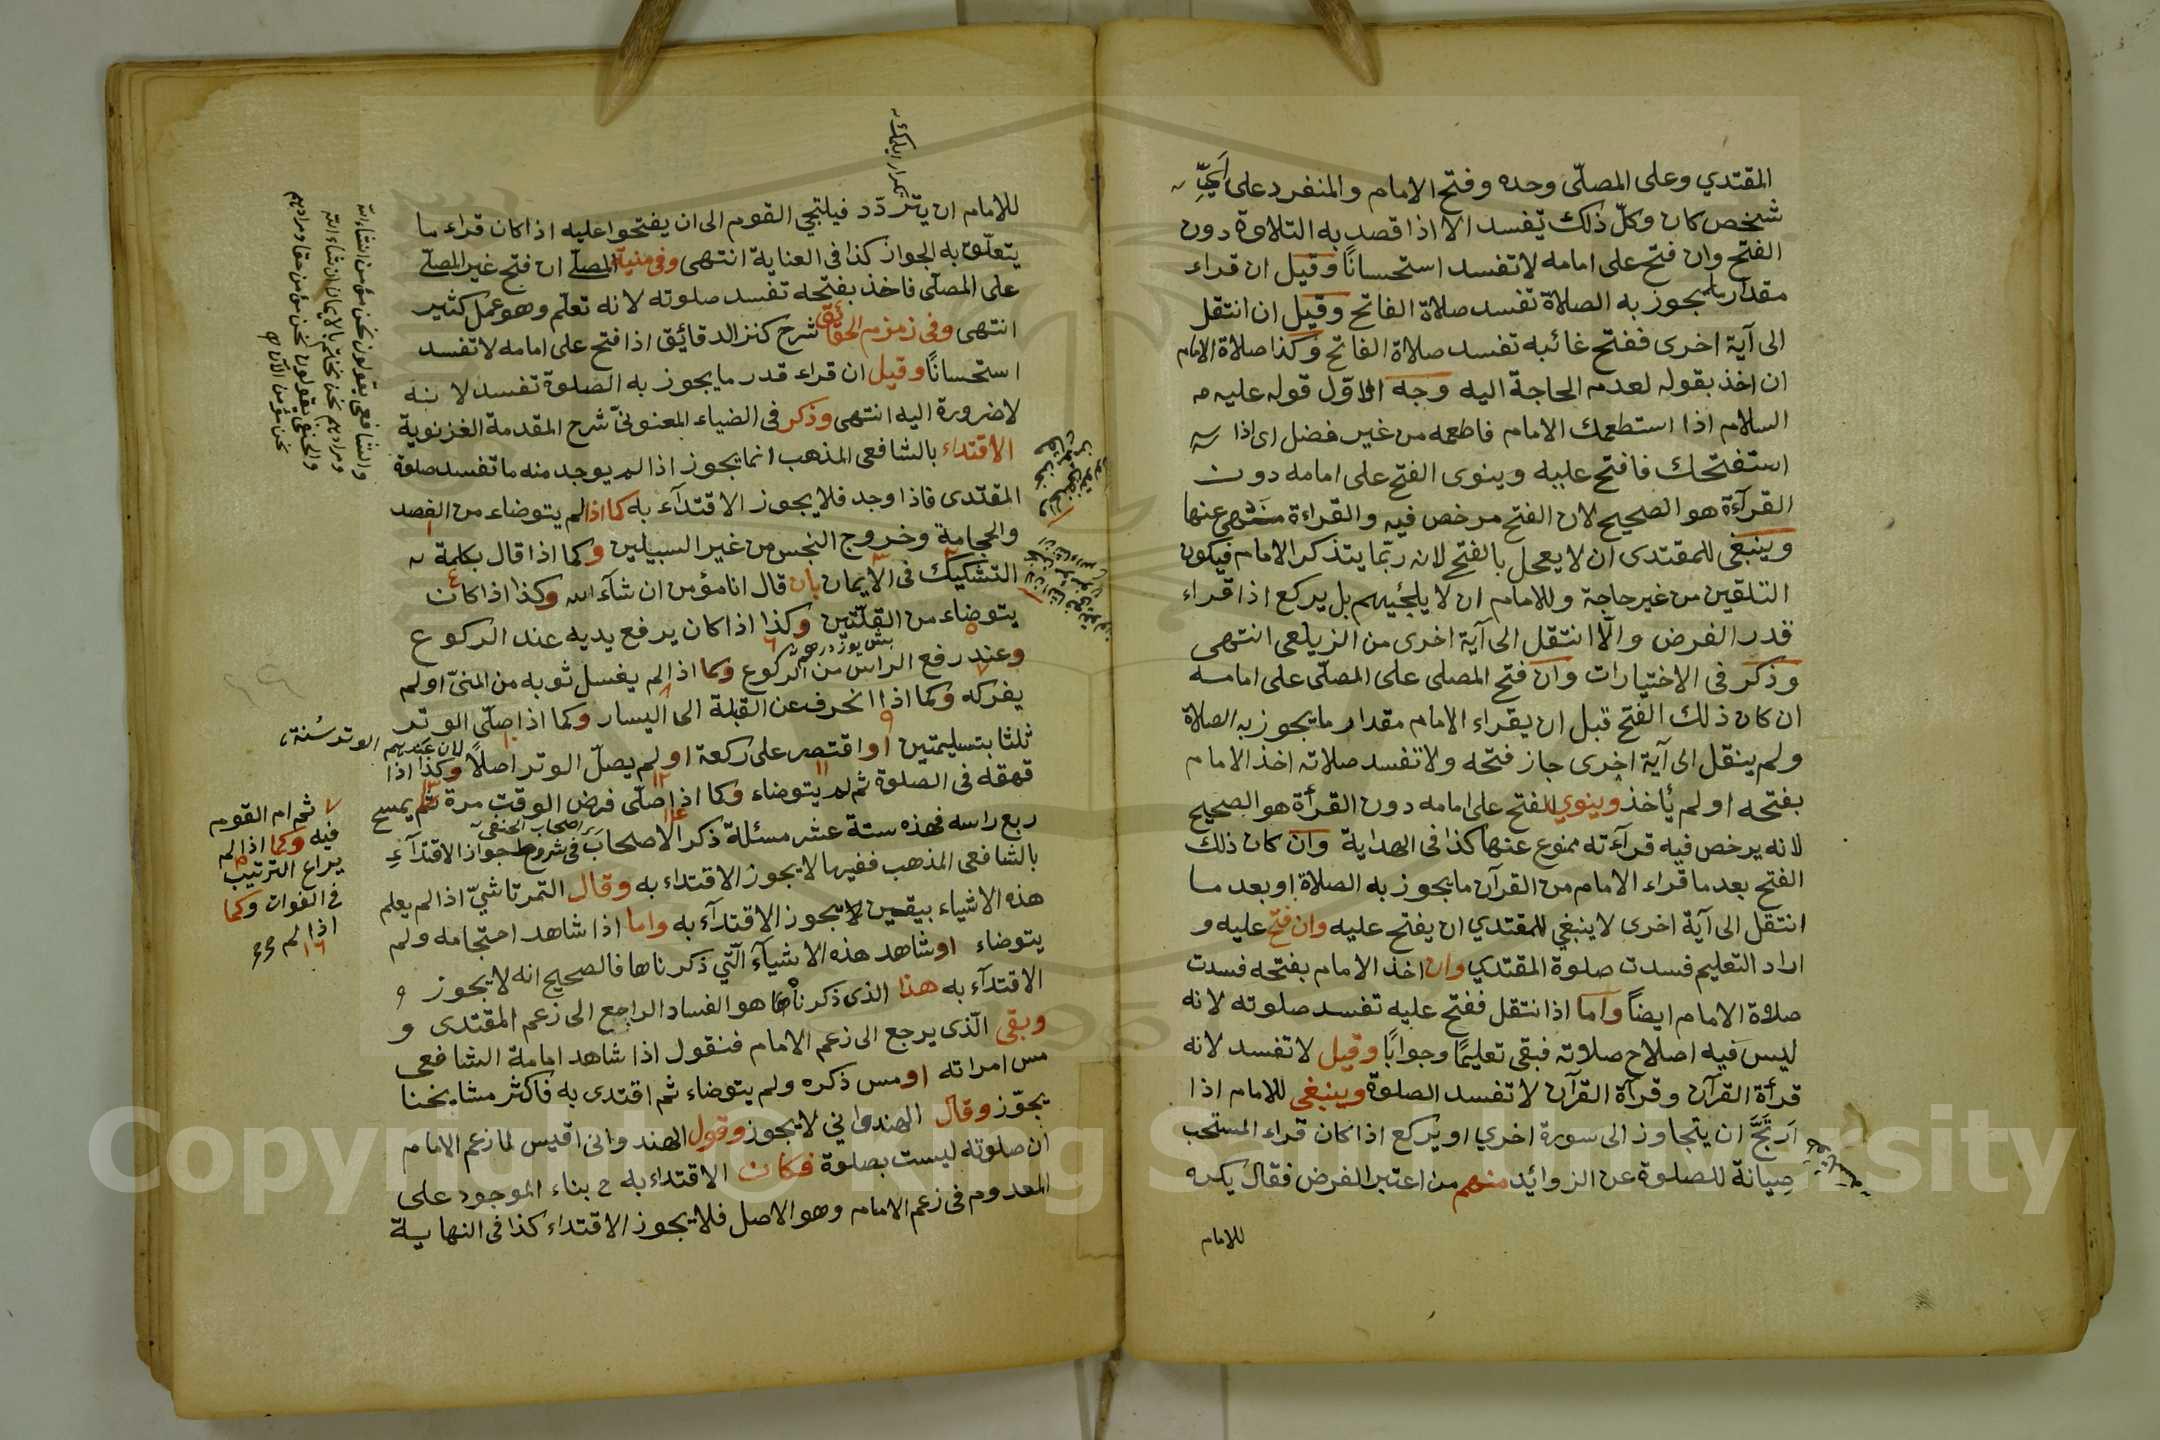 المقتدي وعلى المصلّى وحده وفتح الامام والمنفرد على اَىِّ
شخص كان وكلّ ذلك تفسد الا اذا قصد به التلاوة دون
الفتح وان فتح على امامه لا تفسد استحسانًا وقيل ان قراء
مقدار ما يجوز به الصلاة تفسد صلاة الفاتح وقيل ان انتقل
الى آية اخرى ففتح تفسد صلاة الفاتح وكذا صلاة الامام
ان اخذ بقوله لعدم الحاجة اليه وجه الاوّل قوله عليه
السلام اذا استطعمك الامام فاطعمه من غير فضل اى اذا
استفتحك فافتح عليه وينوى الفتح على امامه دون
القرآءة هو الصحيح لان الفتح مرخص فيه والقراءة منهى عنها
وينبغى للمقتدى ان لا يعجل بالفتح لانه ربّما يتذكر الامام فيكون
التلقين من غير حاجة وللامام ان لا يلجئهم بل يركع اذا قراء
قدر الفرض والّا انتقل الى آية اخرى من الزيلعى انتهى
وذكر فى الاختيارات وان فتح المصلى على المصلّى على امامه
ان كان ذلك الفتح قبل ان يقراء الامام مقدار ما يجوز به الصلاة
ولم ينقل الى آية اخرى جاز فتحه ولا تفسد صلاته اخذ الامام
بفتحه او لم يأخذ وينوي الفتح على امامه دون القرأة هو الصحيح
لانه يرخص فيه قرآءته ممنوع عنها كذا فى الهداية وان كان ذلك
الفتح بعد ما قراء الامام من القرآن ما يجوز به الصلاة او بعد ما
انتقل الى آية اخرى لا ينبغي للمقتدي ان يفتح عليه وان فتح عليه و
اراد التعليم فسدت صلوة المقتدي وان اخذ الامام بفتحه فسدت
صلاوة الامام ايضاً واما اذا انتقل ففتح عليه تفسد صلوته لانه
ليس فيه اصلاح صلاوته فبقى تعليمًا وجوابًا وقيل لا تفسد لانه
قرأة القرآن وقرآة القرآن لا تفسد الصلوة وينبغى للامام اذا
اَرتَجَّ ان يتجاوز الى سورة اخري او يركع اذا كان قراء المستحب
صيانة للصلوة عن الزوائد منهم من اعتبر الفرض فقال يكره
للامام
للامام ان يتردّد فيلتجى القوم الى ان يفتحوا عليه اذا كان قراء ما
يتعلّق به الجواز كذا فى العناية انتهى وفى منية المصلّى ان فتح غير المصلّى
على المصلّى فاخذ بفتحه تفسد صلوته لانه تعلّم وهو عمل كثير
انتهى وفى زمزم الحقائق شرح كنز الدقائق اذا فتح على امامه لا تفسد
استحسانًا وقيل ان قراء قدر ما يجوز به الصلوة تفسد لانه
لا ضرورة اليه انتهى وذكر فى الضياء المعنوىّ شرح المقدمة الغزنوية
الاقتداء بالشافعى المذهب انما يجوز اذا لم يوجد منه ما تفسد صلوة
المقتدى فاذا وجد فلا يجوز الاقتدآء به كما اذا لم يتوضاء من الفصد
والحجامة وخروج النجس من غير السبيلين وكما اذا قال بكلمة
التشكيك فى الايمان بان قال انا مؤمن ان شآء الله وكذا اذا كان
يتوضاء من القلّتين وكذا اذا كان يرفع يديه عند الركوع
وعند رفع الراس من الركوع وكما اذا لم يغسل ثوبه من المنىّ او لم
يفركه وكما اذا انحرف عن القبلة الى اليسار وكما اذا صلّى الوتر
ثلثا بتسليمتين او اقتصر على ركعة او لم يصلّ الوتر اصلاً وكذا اذا
لان عندهم الوتر سُنة
قهقه فى الصلوة ثم لم يتوضاء وكما اذا صلّى فرض الوقت مرة ثم
ثم ام القوم
فيه وكما اذا لم
يراع الترتيب
فى الفوات وكما
اذا لم
يمسح
ربع راسه فهذه ستة عشر مسئلة ذكر الاصحاب فى شروط جواز الاقتدآء
اصحاب الحنفى
بالشافعى المذهب ففيها لا يجوز الاقتداء به وقال التمرتاشيّ اذا لم يعلم
هذه الاشياء بيقين يجوز الاقتدآء به واما اذا شاهد احتجامه ولم
يتوضاء او شاهد هذه الاشيآء الّتي ذكرناها فالصحيح انه لا يجوز
الاقتدآء به هذا الذى ذكرناه هو الفساد الراجع الى زعم المقتدى و
وبقى الّذى يرجع الى زعم الامام فنقول اذا شاهد امامة الشافعى
مس امراته او مس ذكره ولم يتوضاء ثم اقتدى به فاكثر مشايخنا
يجوّز وقال الهندوانى لا يجوز وقول الهندوانى اقيس لما زعم الامام
ان صلوته ليست بصلوة فكان الاقتداء به ح بناء الموجود على
المعدوم فى زعم الامام وهو الاصل فلا يجوز الاقتداء كذا فى النهاية
والشافعى يقولون نحن مؤمن انشاء الله
ومرادهم نحن نختم بالايمان ان شاء الله
والحنفى يقولون نحن مؤمن حقا ومرادهم
نحن مؤمن الآن
Copyright © King Saud University